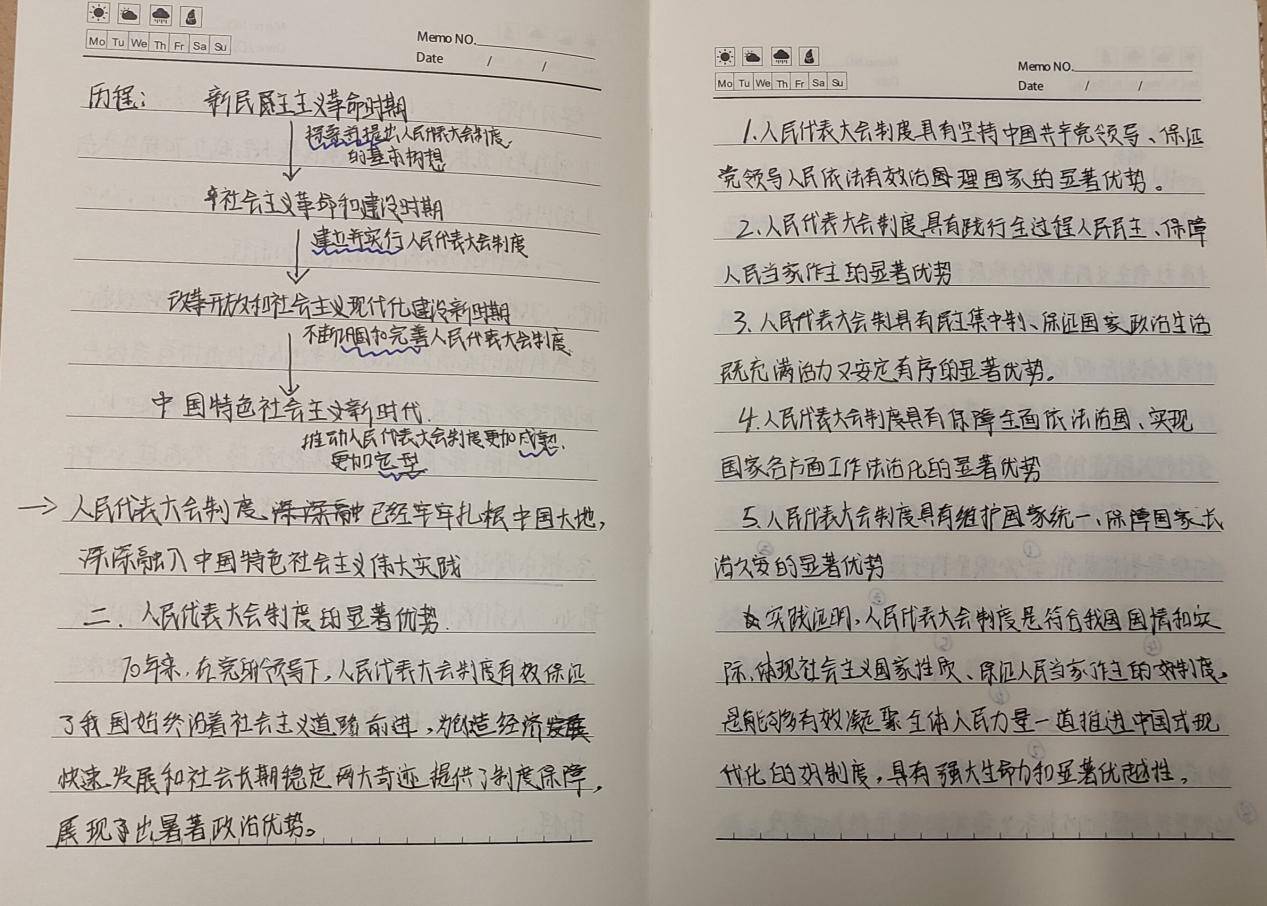 Mo Tu We Th Fr Sa Su
Memo NO.
Date / /
历程：新民主主义革命时期
探索并提出人民代表大会制度
的基本构想
社会主义革命和建设时期
建立并实行人民代表大会制度
改革开放和社会主义现代化建设新时期
不断巩固和完善人民代表大会制度
中国特色社会主义新时代.
推动人民代表大会制度更加成熟、
更加定型
→人民代表大会制度 已经牢牢扎根中国大地，
深深融入中国特色社会主义伟大实践
二. 人民代表大会制度的显著优势.
70年来，在党的领导下，人民代表大会制度有效保证
了我国始终沿着社会主义道路前进，为创造经济
快速发展和社会长期稳定两大奇迹提供了制度保障，
展现出显著政治优势。
Mo Tu We Th Fr Sa Su
Memo NO.
Date / /
1.人民代表大会制度具有坚持中国共产党领导、保证
党领导人民依法有效治理国家的显著优势。
2、人民代表大会制度具有践行全过程人民民主、保障
人民当家作主的显著优势
3. 人民代表大会制具有民主集中制、保证国家政治生活
既充满活力又安定有序的显著优势。
4.人民代表大会制度具有保障全面依法治国、实现
国家各方面工作法治化的显著优势
5.人民代表大会制度具有维护国家统一、保障国家长
治久安的显著优势
实践证明，人民代表大会制度是符合我国国情和实
际、体现社会主义国家性质、保证人民当家作主的好制度，
是能够有效凝聚全体人民力量一道推进中国式现
代化的好制度，具有强大生命力和显著优越性，